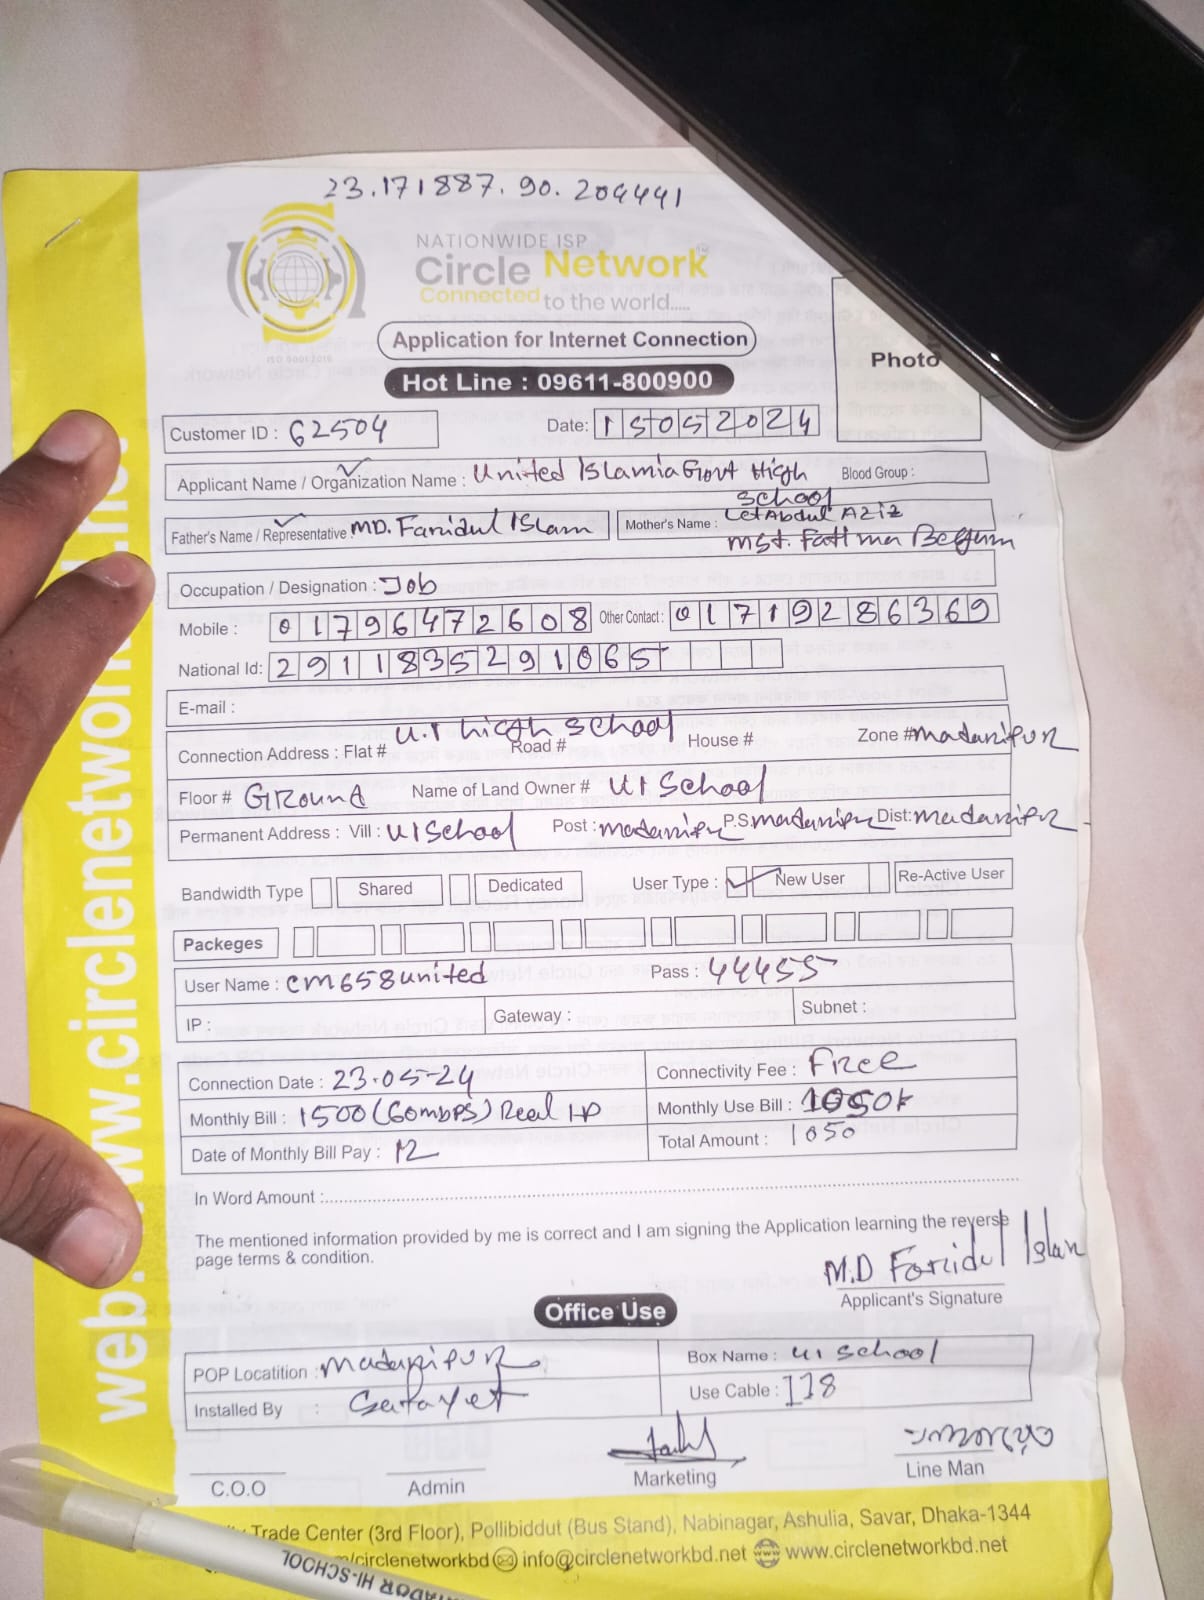 23.171887.90.204441
NATIONWIDE ISP
Circle Network
Connected to the world.....
ISO 9001:2015
Application for Internet Connection
Hot Line : 09611-800900
Photo
Customer ID : 62504 Date: 15052024
Applicant Name / Organization Name : United Islamia Govt High School Blood Group :
Father's Name / Representative : MD. Faridul Islam Mother's Name : Let Abdul Aziz
Mst. Fatima Begum
Occupation / Designation : Job
Mobile : 01796472608 Other Contact : 01719286369
National Id: 2911835291065
E-mail :
Connection Address : Flat # U.I high School Road # House # Zone # Madaripur
Floor # Ground Name of Land Owner # UI School
Permanent Address : Vill : UI School Post : Madaripur P.S Madaripur Dist: Madaripur
Bandwidth Type Shared Dedicated User Type : ✓ New User Re-Active User
Packeges
User Name : cm658united Pass : 44455
IP : Gateway : Subnet :
Connection Date : 23.05-24 Connectivity Fee : Free
Monthly Bill : 1500 (60mbps) Real IP Monthly Use Bill : 1050
Date of Monthly Bill Pay : 12 Total Amount : 1050
In Word Amount :
The mentioned information provided by me is correct and I am signing the Application learning the reverse
page terms & condition.
M.D Faridul Islam
Applicant's Signature
Office Use
POP Locatition : Madaripur Box Name : UI School
Installed By : Use Cable : 118
C.O.O Admin Marketing Line Man
Trade Center (3rd Floor), Pollibiddut (Bus Stand), Nabinagar, Ashulia, Savar, Dhaka-1344
/circlenetworkbd info@circlenetworkbd.net www.circlenetworkbd.net
web: www.circlenetwork
HI-SCHOOL